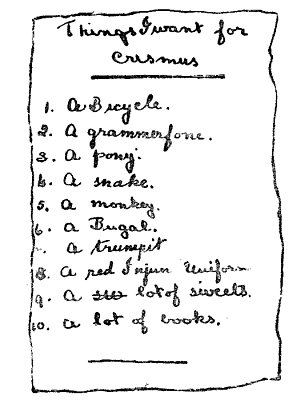 Things I want for
Crismus
1. A Bicycle.
2. A grammerfone.
3. A pony.
4. A snake.
5. A monkey.
6. A Bugal.
A trumpit
8. A red Injun Uniform
9. A lot of sweets.
10. A lot of books.